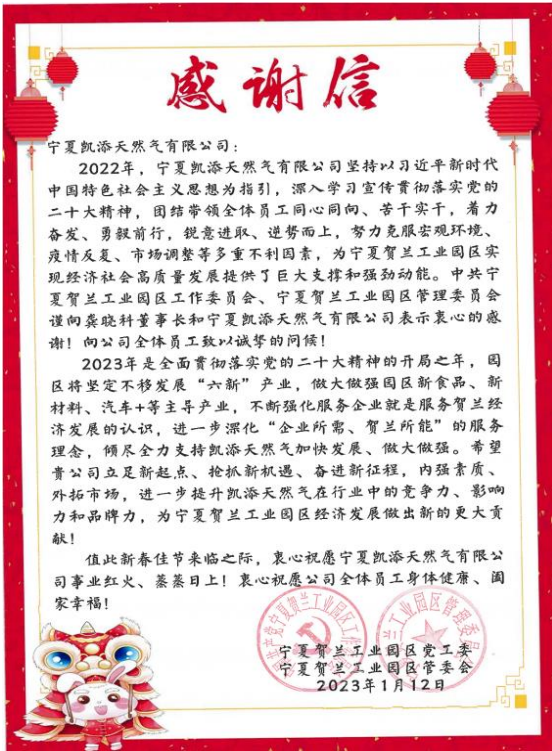 感谢信
宁夏凯添天然气有限公司：
2022年，宁夏凯添天然气有限公司坚持以习近平新时代
中国特色社会主义思想为指引，深入学习宣传贯彻落实党的
二十大精神，团结带领全体员工同心同向、苦干实干，着力
奋发、勇毅前行，锐意进取、逆势而上，努力克服宏观环境、
疫情反复、市场调整等多重不利因素，为宁夏贺兰工业园区实
现经济社会高质量发展提供了巨大支撑和强劲动能。中共宁
夏贺兰工业园区工作委员会、宁夏贺兰工业园区管理委员会
谨向龚晓科董事长和宁夏凯添天然气有限公司表示衷心的感
谢！向公司全体员工致以诚挚的问候！
2023年是全面贯彻落实党的二十大精神的开局之年，园
区将坚定不移发展“六新”产业，做大做强园区新食品、新
材料、汽车+等主导产业，不断强化服务企业就是服务贺兰经
济发展的认识，进一步深化“企业所需、贺兰所能”的服务
理念，倾尽全力支持凯添天然气加快发展、做大做强。希望
贵公司立足新起点、抢抓新机遇、奋进新征程，内强素质、
外拓市场，进一步提升凯添天然气在行业中的竞争力、影响
力和品牌力，为宁夏贺兰工业园区经济发展做出新的更大贡
献！
值此新春佳节来临之际，衷心祝愿宁夏凯添天然气有限公
司事业红火、蒸蒸日上！衷心祝愿公司全体员工身体健康、阖
家幸福！
宁夏贺兰工业园区党工委
宁夏贺兰工业园区管委会
2023年1月12日